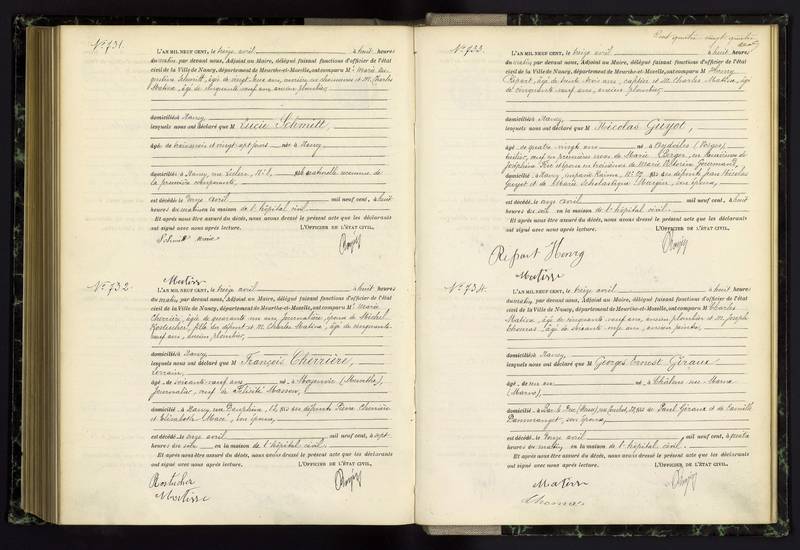 N° 731.
L'AN MIL NEUF CENT, le treize avril à huit heures
du matin par devant nous, Adjoint au Maire, délégué faisant fonctions d'officier de l'état
civil de la Ville de Nancy, département de Meurthe-et-Moselle, ont comparu M Marie
Schmitt, âgé de vingt ans, et M. Charles
Matisse, âgé de cinquante neuf ans, ancien plombier,
domiciliés à Nancy
lesquels nous ont déclaré que M Lucie Schmitt,
âgée de trois mois et vingt sept jours née à Nancy
domiciliée à Nancy, rue fille naturelle reconnue de
la première comparante,
est décédée le onze avril mil neuf cent, à huit
heures du matin en la maison de l'hôpital civil.
Et après nous être assuré du décès, nous avons dressé le présent acte que les déclarants
ont signé avec nous après lecture. L'OFFICIER DE L'ÉTAT CIVIL,
Schmitt Marie
Matisse
N° 732.
L'AN MIL NEUF CENT, le treize avril à huit heures
du matin par devant nous, Adjoint au Maire, délégué faisant fonctions d'officier de l'état
civil de la Ville de Nancy, département de Meurthe-et-Moselle, ont comparu M Marie
Cherrière, âgée de quarante un ans, journalière, épouse de Michel
fille du défunt et M. Charles Matisse, âgé de cinquante
neuf ans, ancien plombier,
domiciliés à Nancy
lesquels nous ont déclaré que M François Cherrière,
âgé de soixante neuf ans né à (Meurthe),
journalier, veuf de Félicité Masson,
domicilié à Nancy, rue Dauphine, 12, fils des défunts Pierre Cherrière
et Elisabeth Macé, son épouse,
est décédé le onze avril mil neuf cent, à sept
heures du soir en la maison de l'hôpital civil.
Et après nous être assuré du décès, nous avons dressé le présent acte que les déclarants
ont signé avec nous après lecture. L'OFFICIER DE L'ÉTAT CIVIL,
Matisse
Cent quatre vingt quatre
N° 733.
L'AN MIL NEUF CENT, le treize avril à huit heures
du matin par devant nous, Adjoint au Maire, délégué faisant fonctions d'officier de l'état
civil de la Ville de Nancy, département de Meurthe-et-Moselle, ont comparu M Henry
âgé de trente trois ans, et M. Charles Matisse, âgé
de cinquante neuf ans, ancien plombier,
domiciliés à Nancy
lesquels nous ont déclaré que M Nicolas Guyot,
âgé de quatre vingt ans né à (Vosges)
veuf en premières noces de Marie Berger, en deuxièmes de
Joséphine et époux en troisièmes de Marie
domicilié à Nancy, fils des défunts Jean Nicolas
Guyot et de Marie Scholastique son épouse,
est décédé le onze avril mil neuf cent, à huit
heures du soir en la maison de l'hôpital civil.
Et après nous être assuré du décès, nous avons dressé le présent acte que les déclarants
ont signé avec nous après lecture. L'OFFICIER DE L'ÉTAT CIVIL,
Henry
Matisse
N° 734.
L'AN MIL NEUF CENT, le treize avril à huit heures
du matin par devant nous, Adjoint au Maire, délégué faisant fonctions d'officier de l'état
civil de la Ville de Nancy, département de Meurthe-et-Moselle, ont comparu M Charles
Matisse, âgé de cinquante neuf ans, ancien plombier et M. Joseph
Thomas, âgé de soixante neuf ans, ancien peintre,
domiciliés à Nancy
lesquels nous ont déclaré que M Georges Ernest Giraux,
âgé de un an né à Châlons sur Marne
(Marne),
domicilié à Bar le Duc (Meuse), fils de Paul Giraux et de Camille
son épouse,
est décédé le onze avril mil neuf cent, à
heures du matin en la maison de l'hôpital civil.
Et après nous être assuré du décès, nous avons dressé le présent acte que les déclarants
ont signé avec nous après lecture. L'OFFICIER DE L'ÉTAT CIVIL,
Matisse
Thomas